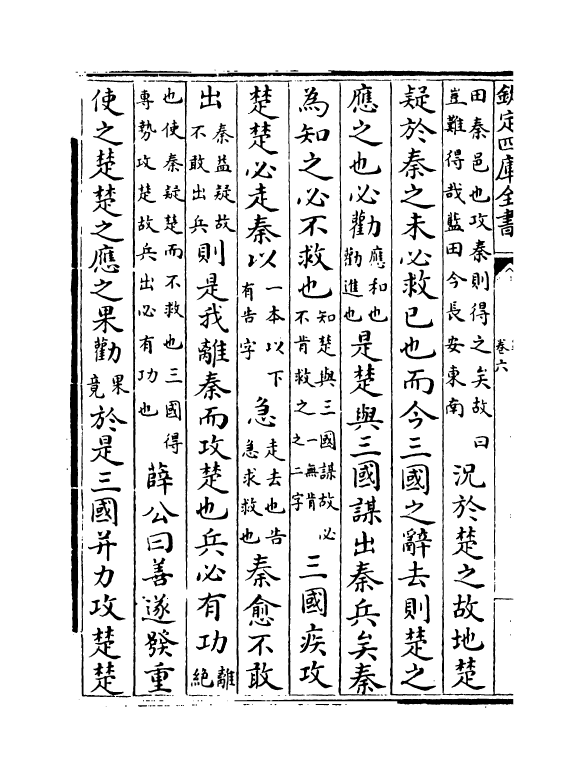 欽定四庫全書
卷六
田秦邑也攻秦則得之矣故曰
豈難得哉藍田今長安東南
況於楚之故地楚
疑於秦之未必救已也而今三國之辭去則楚之
應之也必勸
應和也
勸進也
是楚與三國謀出秦兵矣秦
為知之必不救也
知楚與三國謀故必
不肯救之一無肯之二字
三國疾攻
楚楚必走秦以
一本以下
有告字
急
走去也告
急求救也
秦愈不敢
出
秦益疑故
不敢出兵
則是我離秦而攻楚也兵必有功
離
絕
也使秦疑楚而不救也三國得
專勢攻楚故兵出必有功也
薛公曰善遂發重
使之楚楚之應之果勸
果
竟
於是三國并力攻楚楚